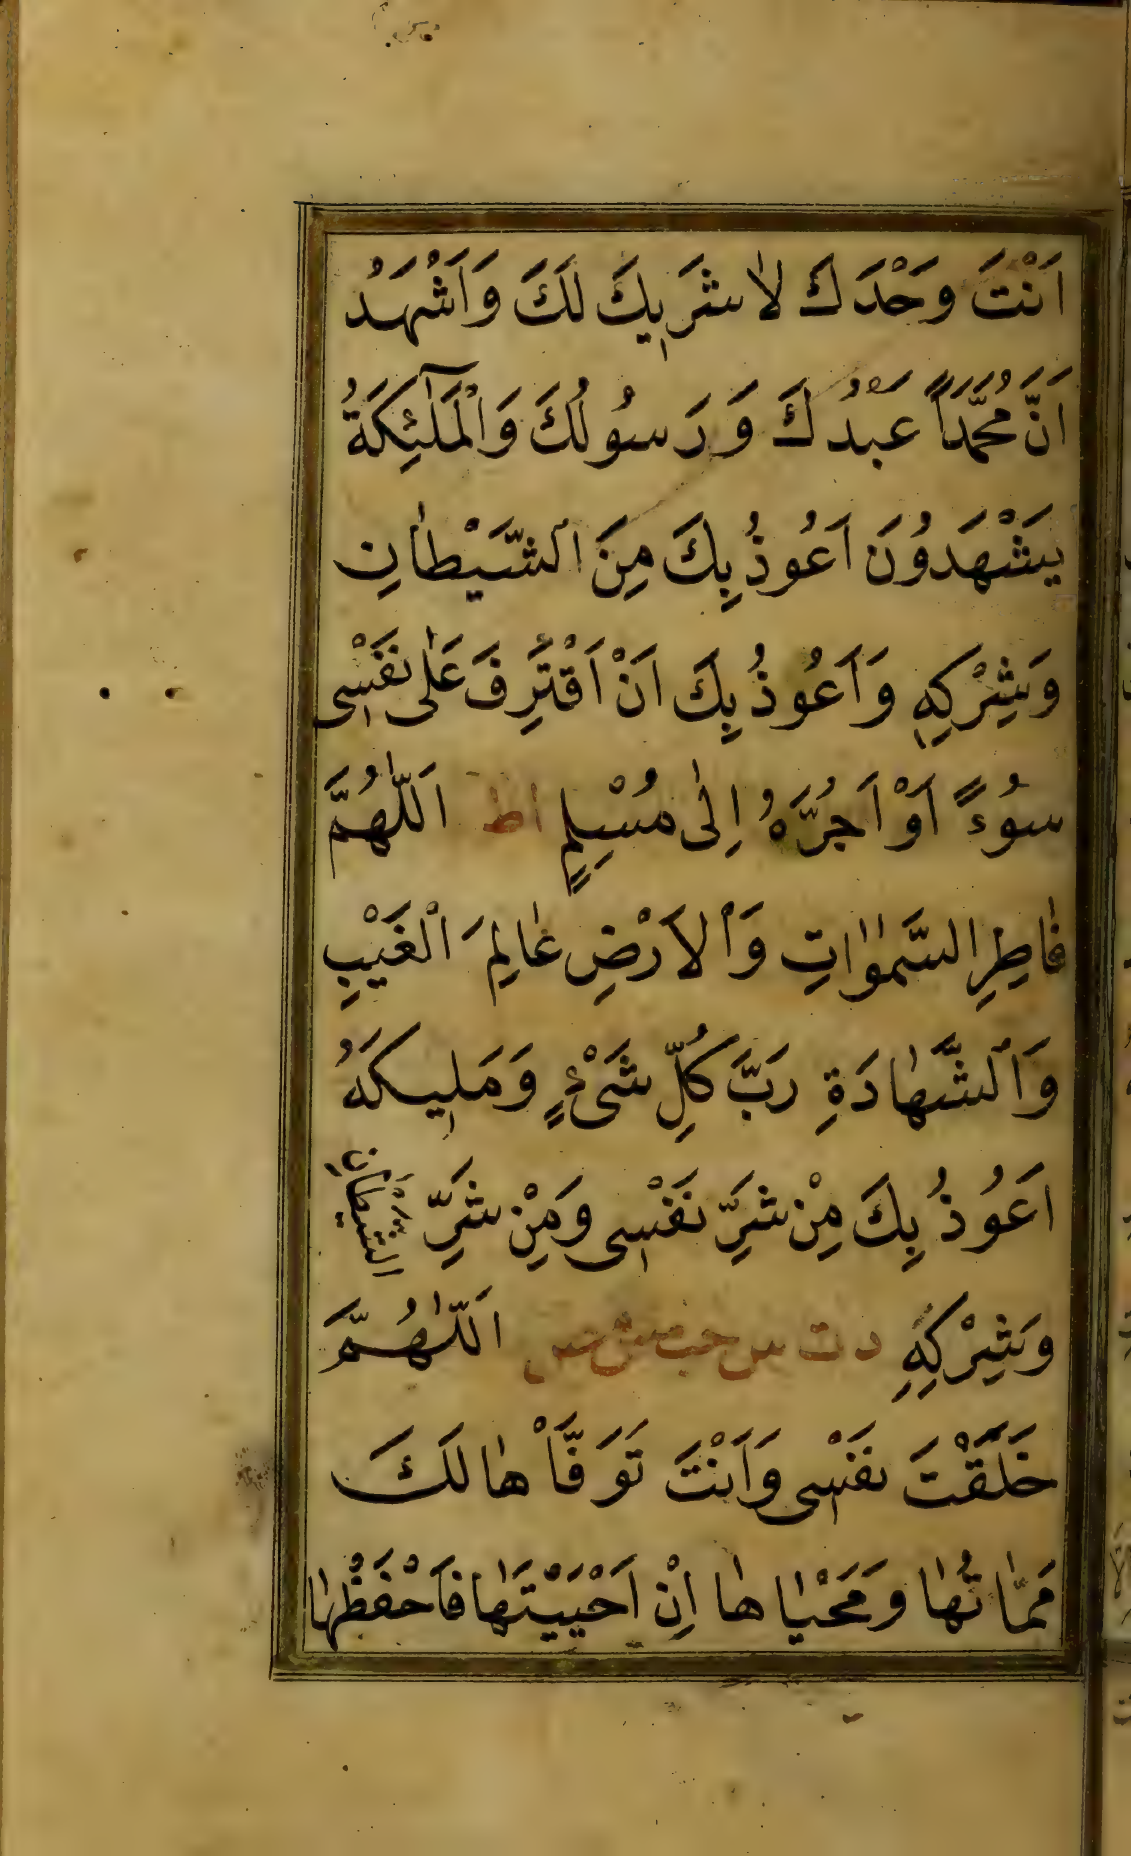 اَنْتَ وَحْدَكَ لَا شَرِيكَ لَكَ وَاَشْهَدُ
اَنَّ مُحَمَّدًا عَبْدُكَ وَرَسُولُكَ وَالْمَلٰٓئِكَةُ
يَشْهَدُونَ اَعُوذُ بِكَ مِنَ الشَّيْطَانِ
وَشِرْكِهِ وَاَعُوذُ بِكَ اَنْ اَقْتَرِفَ عَلٰى نَفْسِى
سُوءً اَوْ اَجُرَّهُ اِلٰى مُسْلِمٍ اط اَللّٰهُمَّ
فَاطِرِ السَّمٰوَاتِ وَالْاَرْضِ عَالِمَ الْغَيْبِ
وَالشَّهَادَةِ رَبَّ كُلِّ شَىْءٍ وَمَلِيكَهُ
اَعُوذُ بِكَ مِنْ شَرِّ نَفْسِى وَمِنْ شَرِّ الشَّيْطَانِ
وَشِرْكِهِ د ت س حب مس مص اَللّٰهُمَّ
خَلَقْتَ نَفْسِى وَاَنْتَ تَوَفَّاهَا لَكَ
مَمَاتُهَا وَمَحْيَاهَا اِنْ اَحْيَيْتَهَا فَاحْفَظْهَا